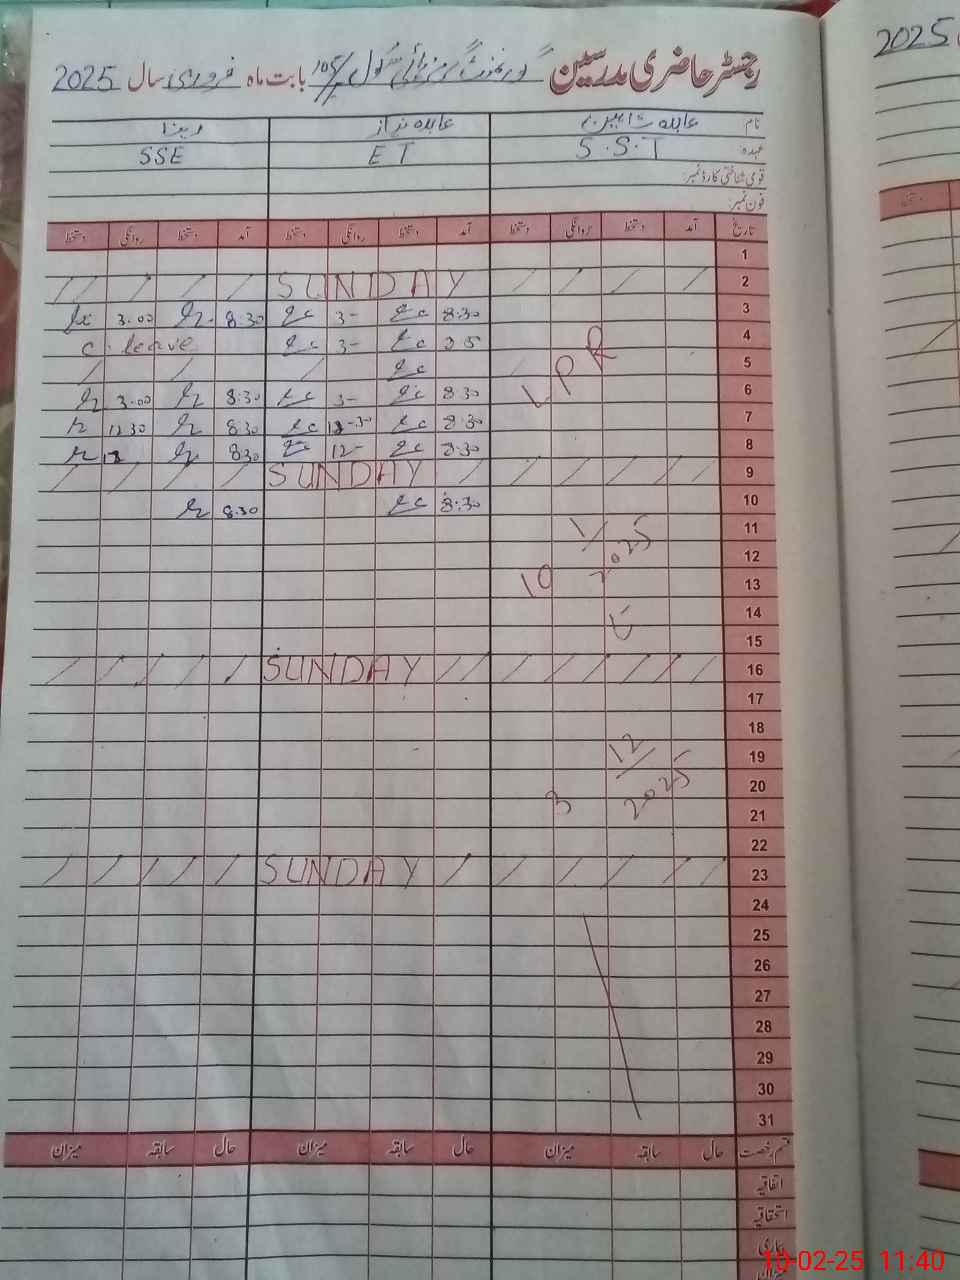 رجسٹر حاضری مدرسین گورنمنٹ گرلز پرائمری سکول بابت ماہ فروری سال 2025
2025
نام عابدہ شاہین عابدہ نیاز
عہدہ: S.S.T E T SSE
قومی شناختی کارڈ نمبر:
فون نمبر:
تاریخ آمد دستخط روانگی دستخط آمد دستخط روانگی دستخط آمد دستخط روانگی دستخط
1
2 SUNDAY
3 8:30 3- 8:30 3.00
4 3- c. leave
5
6 8:30 3- 8:30 3.00
7 8:30 12-30 8:30 12 30
8 8:30 12- 830 12
LPR
9 SUNDAY
10 8:30 8.30
11
12
13
14
15
10 1/2025
تا
16 SUNDAY
17
18
19
20
21
22
3 12/2025
23 SUNDAY
24
25
26
27
28
29
30
31
قسم رخصت حال سابقہ میزان حال سابقہ میزان حال سابقہ میزان
اتفاقیہ
استحقاقیہ
بیماری
میزان
10-02-25 11:40